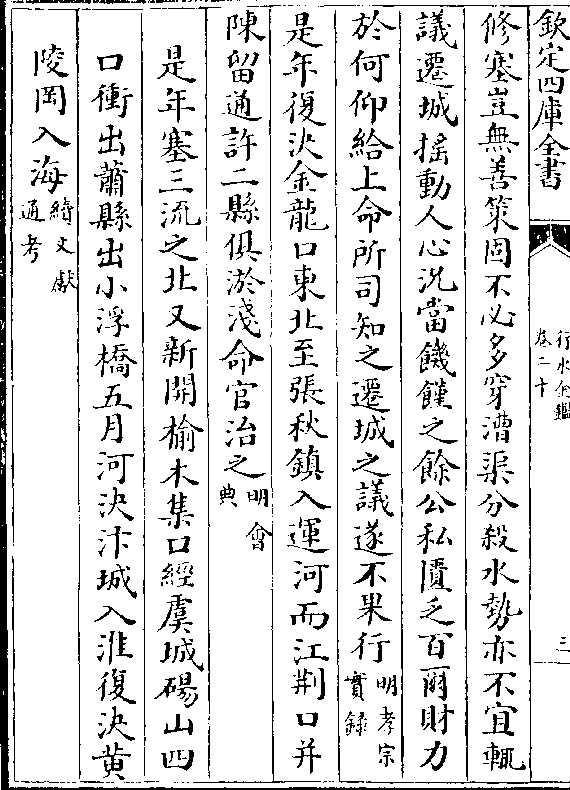 欽定四庫全書
行水金鑑
卷二十
三
修塞豈無善策固不必多穿漕渠分殺水勢亦不宜輒
議遷城搖動人心況當饑饉之餘公私匱乏百爾財力
於何仰給上命所司知之遷城之議遂不果行明孝宗實錄
是年復決金龍口東北至張秋鎮入運河而江荆口并
陳留通許二縣俱淤淺命官治之明會典
是年塞三流之北又新開榆木集口經虞城碭山四
口衝出蕭縣出小浮橋五月河決汴城入淮復決黃
陵岡入海續文獻通考